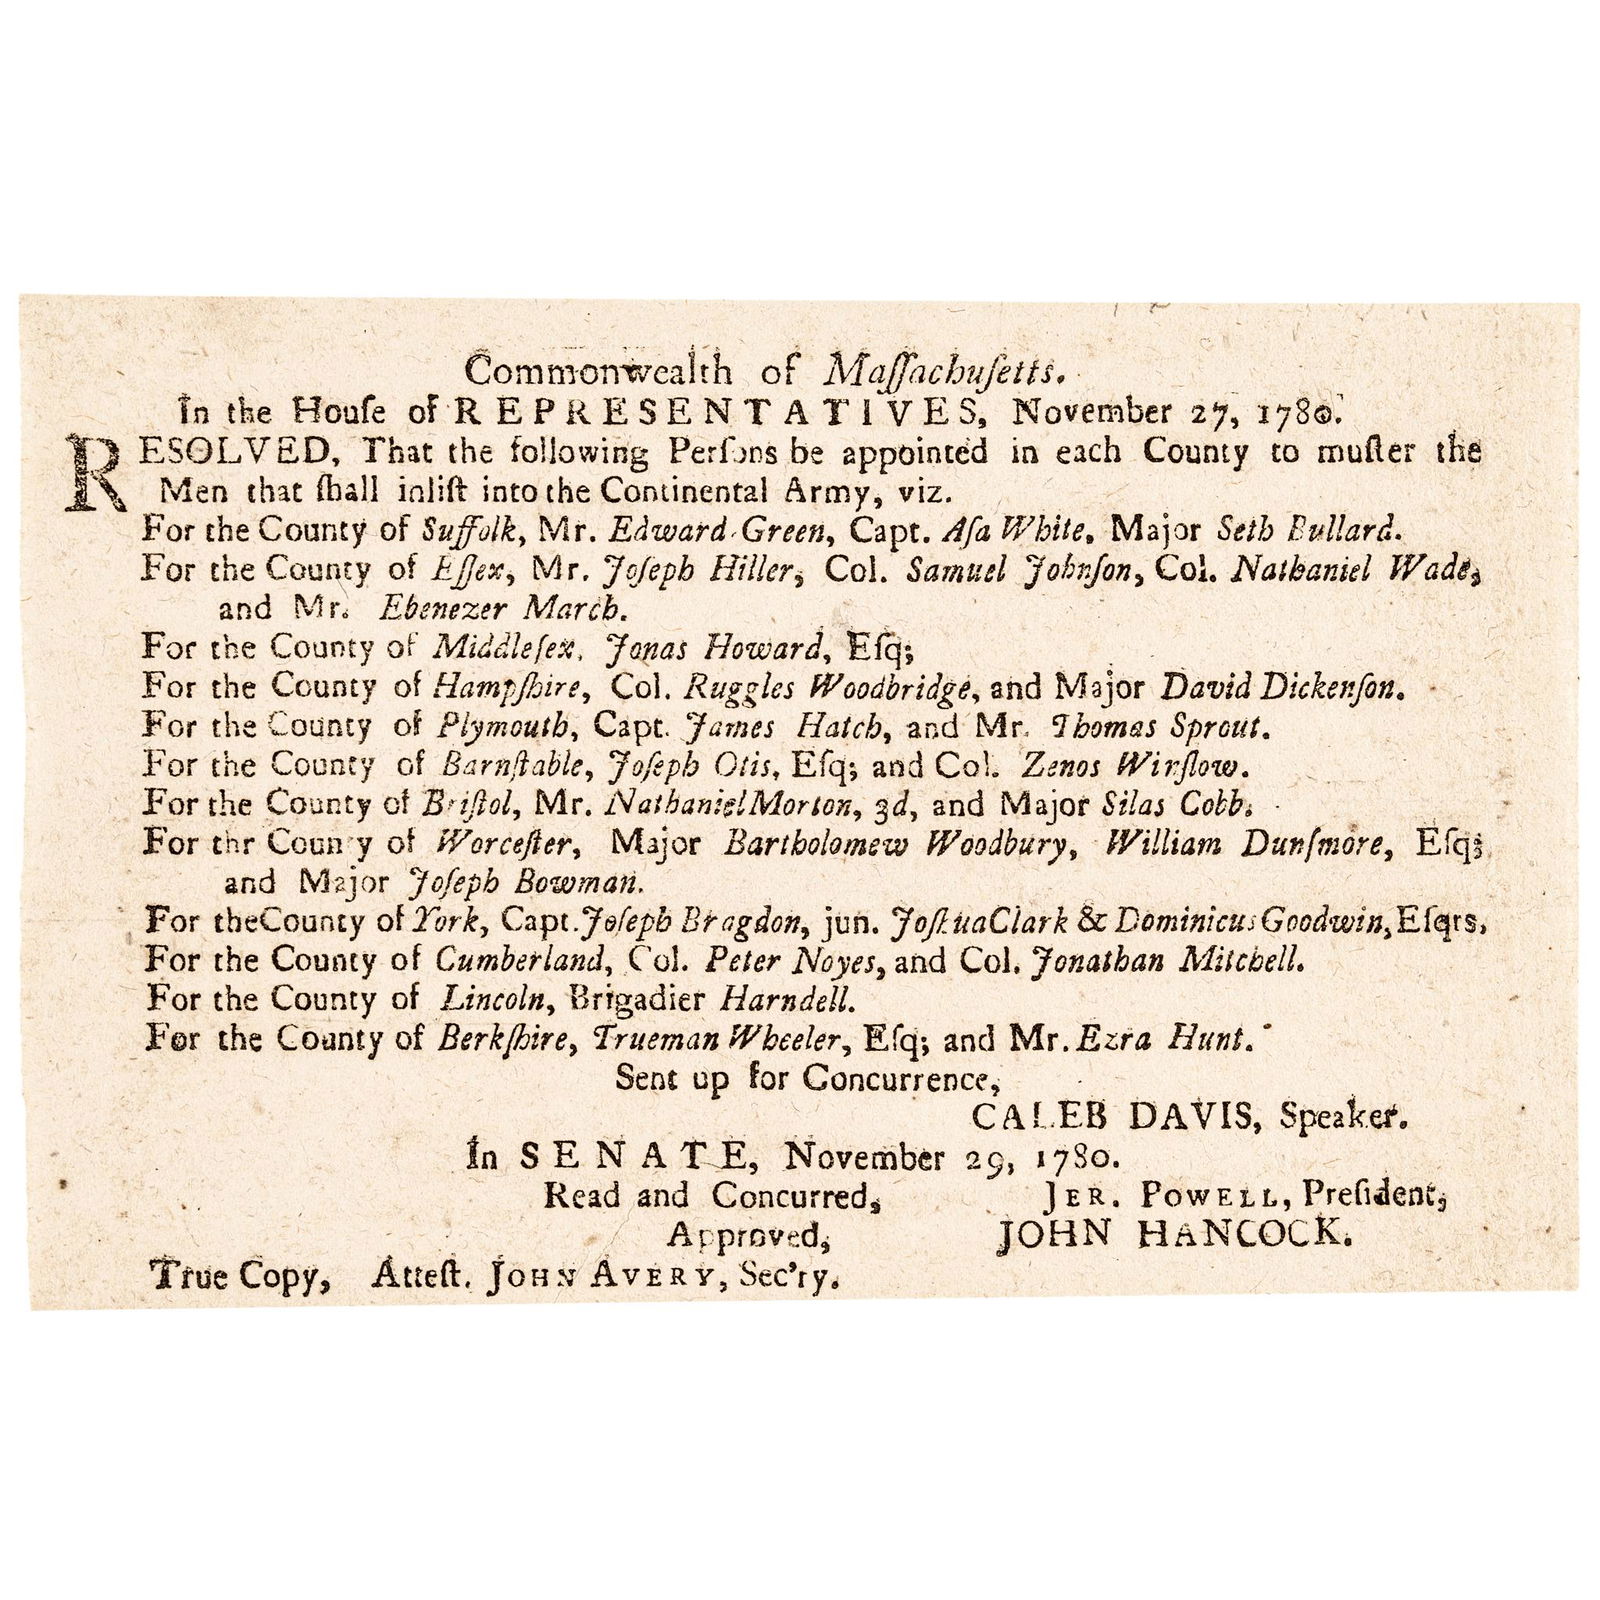 Commonwealth of Maſſachuſetts.
In the Houſe of REPRESENTATIVES, November 27, 1780.
RESOLVED, That the following Perſons be appointed in each County to muſter the
Men that ſhall inliſt into the Continental Army, viz.
For the County of Suffolk, Mr. Edward Green, Capt. Aſa White, Major Seth Bullard.
For the County of Eſſex, Mr. Joſeph Hiller, Col. Samuel Johnſon, Col. Nathaniel Wade,
and Mr. Ebenezer March.
For the County of Middleſex, Jonas Howard, Eſq;
For the County of Hampſhire, Col. Ruggles Woodbridge, and Major David Dickenſon.
For the County of Plymouth, Capt. James Hatch, and Mr. Thomas Sprout.
For the County of Barnſtable, Joſeph Otis, Eſq; and Col. Zenos Winſlow.
For the County of Briſtol, Mr. Nathaniel Morton, 3d, and Major Silas Cobb.
For thr County of Worceſter, Major Bartholomew Woodbury, William Dunſmore, Eſq;
and Major Joſeph Bowman.
For the County of York, Capt. Joſeph Bragdon, jun. Joſhua Clark & Dominicus Goodwin, Eſqrs.
For the County of Cumberland, Col. Peter Noyes, and Col. Jonathan Mitchell.
For the County of Lincoln, Brigadier Harndell.
For the County of Berkſhire, Trueman Wheeler, Eſq; and Mr. Ezra Hunt.
Sent up for Concurrence,
CALEB DAVIS, Speaker.
In SENATE, November 29, 1780.
Read and Concurred, JER. POWELL, Preſident,
Approved, JOHN HANCOCK.
True Copy, Atteſt. JOHN AVERY, Sec'ry.